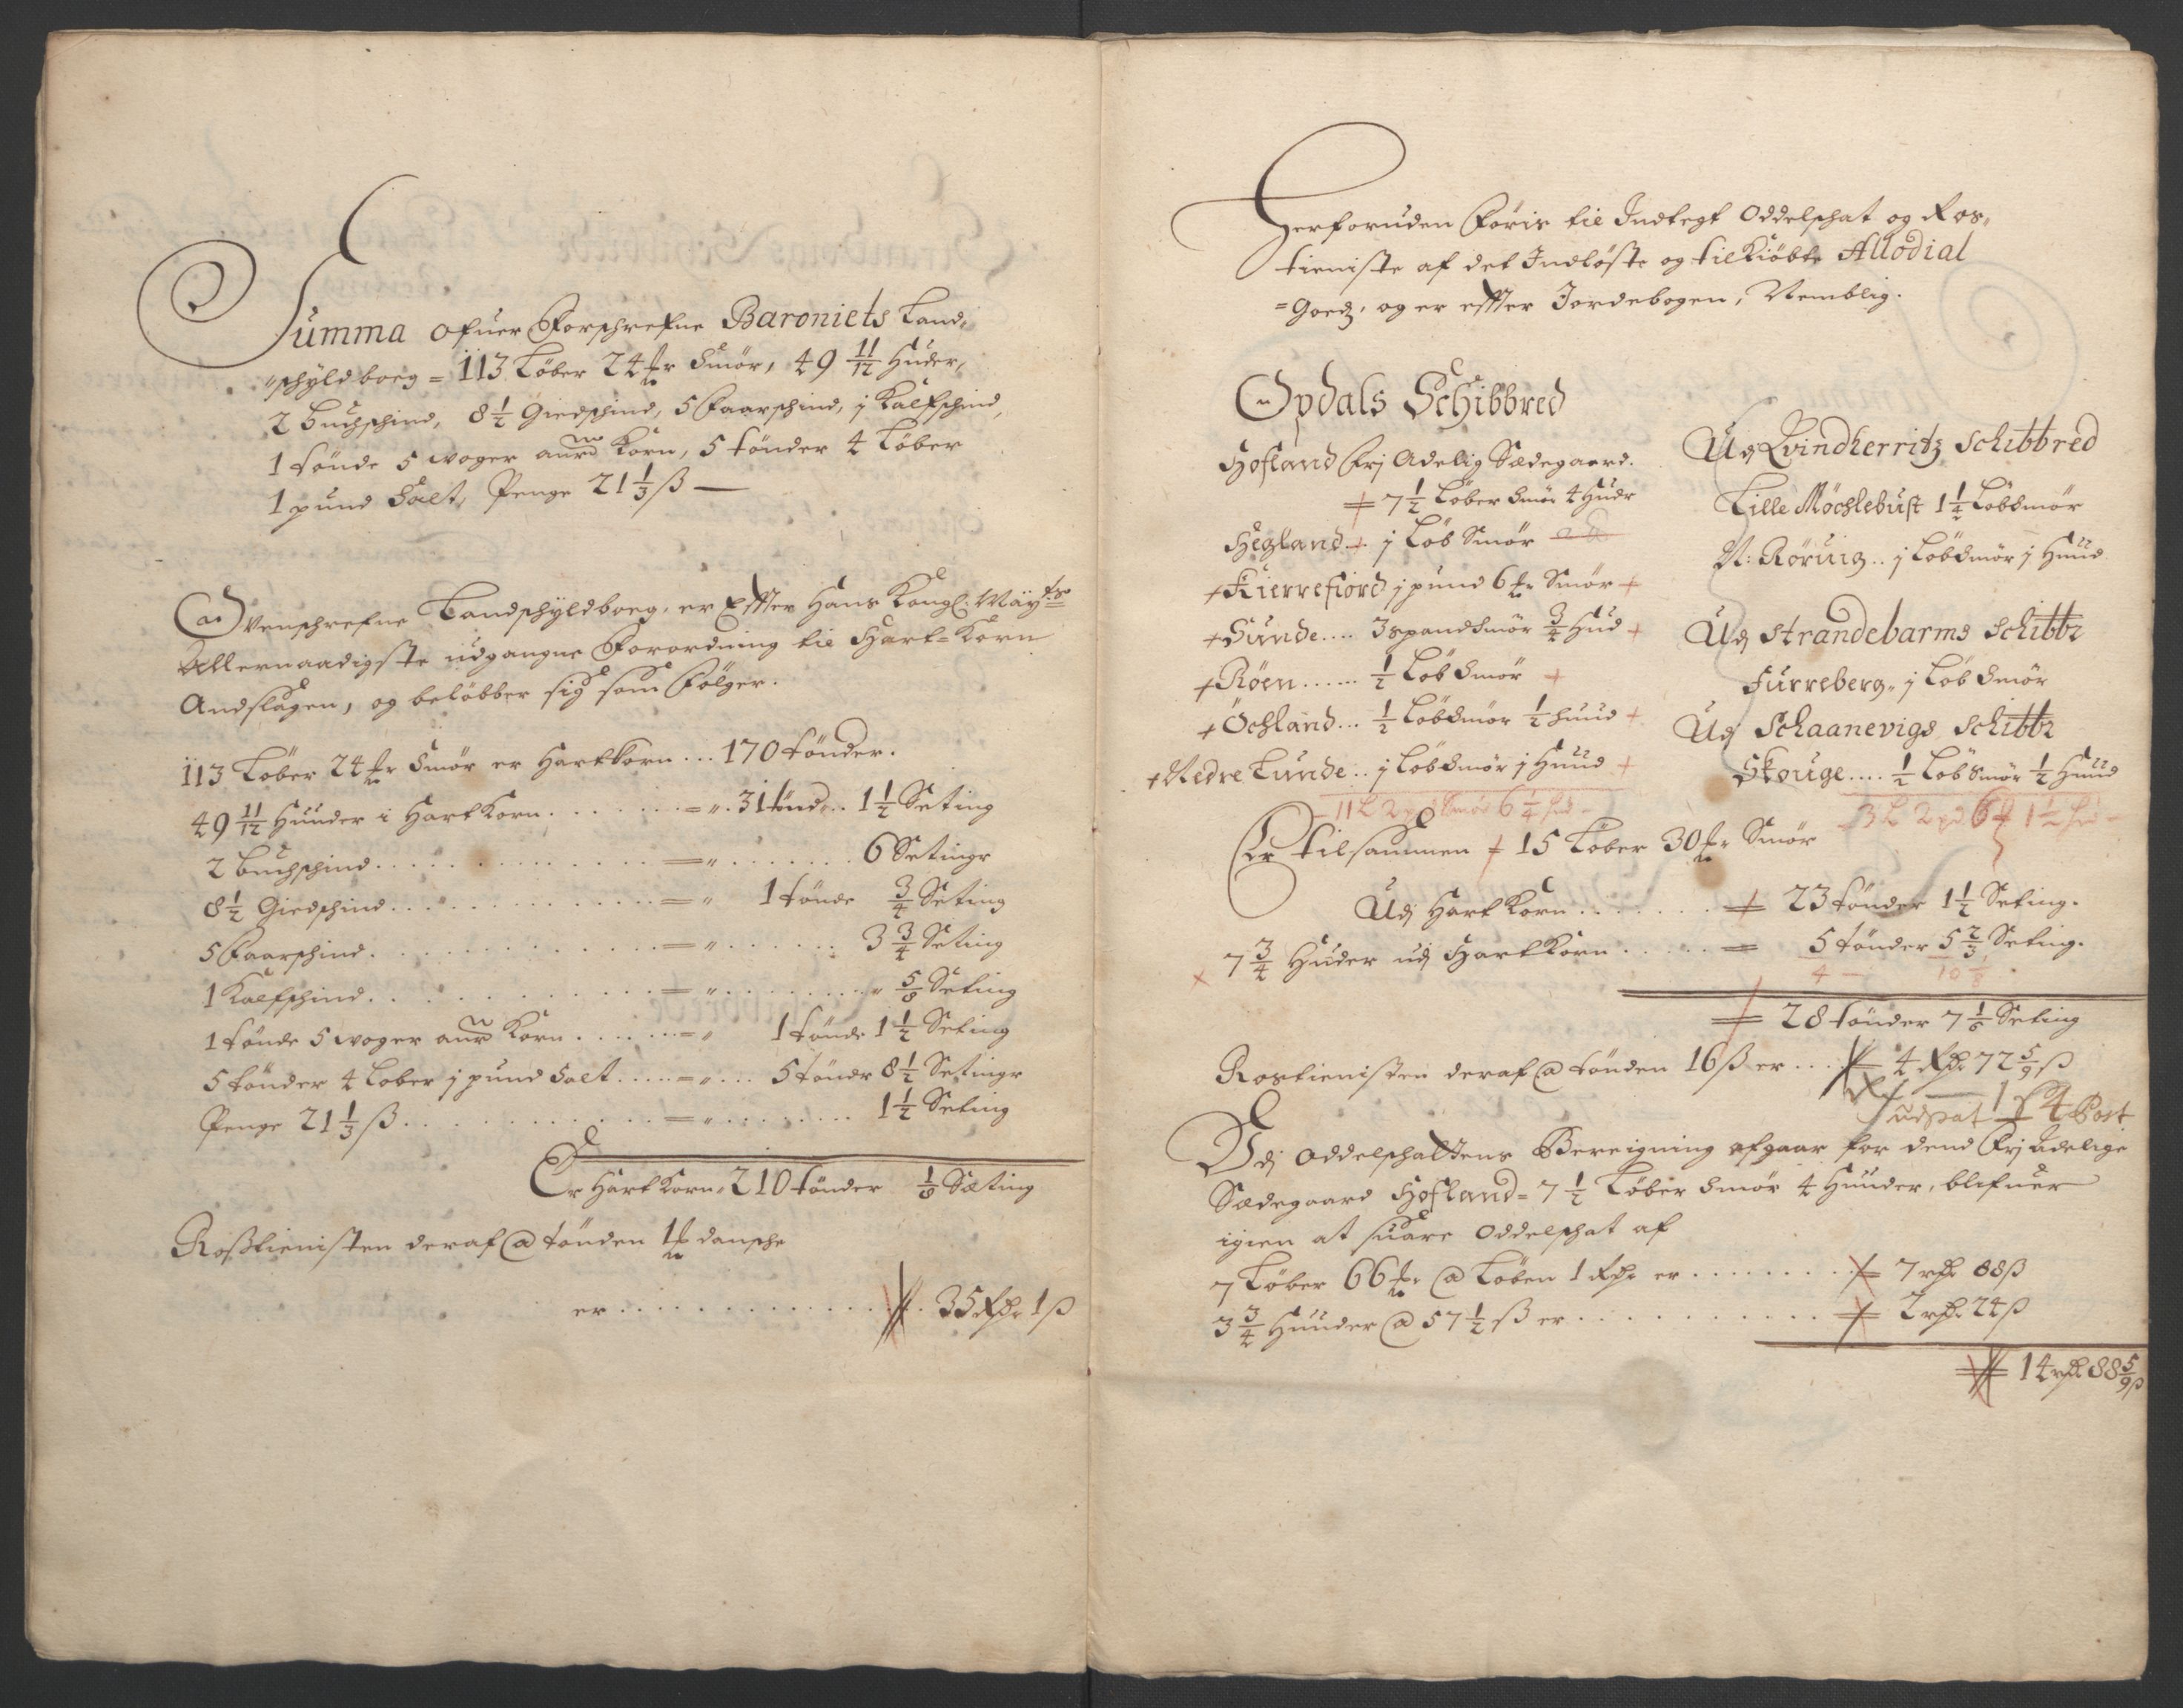 Summa ofuer Forschrefne Baroniets Land-
schyldboeg = 113 Løber 24 ℔r Smør, 49 11/12 Huder,
2 Buchschind, 8 1/2 Giedschind, 5 Faarschind, j Kalfschind,
1 tønde 5 woger aurd Korn, 5 tønder 4 Løber
1 pund Salt, Penge 21 1/3 ß —
Ovenschrefne Landschyldboeg, er Effter Hans Kongl: Mäyts
Allernaadigste udgangne Forordning til Hart-Korn
Andslagen, og beløbber sig som Følger.
113 Løber 24 ℔r Smør er Hartkorn ... 170 tønder.
49 11/12 Huuder i HartKorn ...... = „ 31 tønd .. 1 1/2 Seting
2 Buchschind ............ = „ ....... 6 Setingr
8 1/2 Giedschind ............ = „ 1 tønde 3/4 Seting
5 Faarschind ............ = „ ...... 3 3/4 Seting
1 Kalfschind ............ = „ ........ „ 5/8 Seting
1 tønde 5 woger aurd Korn ...... = „ 1 tønde 1 1/2 Seting
5 tønder 4 Løber j pund Salt ..... = „ ... 5 tøndr 8 1/2 Setingr
Penge 21 1/3 ß ............ = „ ........ 1 1/2 Seting
Er HartKorn = 210 tønder 1/8 Sæting
Rosstienisten deraf @ tønden 1 ℔ dansche
er ............ 35 Rdr 1 ß
Herforuden Føris til Indtegt Oddelschat og Ros-
tieniste af det Indløste og tilKiøbte Allodial
=Goedz, og er effter Jordebogen, Nemblig.
Opdals Schibbred
Hofland Frj Adelig Sædegaard.
= 7 1/2 Løber Smør 4 Hudr
Hegland .. j Løb Smør
+ Kierrefiord j pund 6 ℔r Smør +
+ Sunde .... 3 spand Smør 3/4 Hud +
+ Røen ...... 1/2 Løb Smør +
+ Ochland ... 1/2 Løb Smør 1/2 huud +
+ Nedre Lunde .. j Løb Smør j Huud +
11 L 2 pd Smør 6 1/4 hud
Udj Qvindherritz Schibbred
Lille Møchlebust 1 1/4 Løb Smør
N: Røruig .. j Løb Smør j Huud
Udj Strandebarms Schibbr
Furreberg „ j Løb Smør
Udj Schaanevigs Schibbr
Skouge .... 1/2 Løb Smør 1/2 Huud
3 L 2 pd 6 ℔ 1 1/2 hud
Er tilsammen = 15 Løber 30 ℔r Smør
Udj HartKorn ....... = 23 tønder 1 1/2 Seting.
7 3/4 Huder udj HartKorn ..... = 5 tønder 5 2/3 Seting.
4 — 10 1/8
= 28 tønder 7 1/6 Seting
Rostienisten deraf @ tønden 16 ß er ... 4 Rdr 72 5/9 ß
Udj Oddelschattens Bereigning afgaar for dend Frj Adelige
Sædegaard Hofland = 7 1/2 Løber Smør 4 Huuder, blifuer
igien at suare Oddelschat af
7 Løber 66 ℔r @ Løben 1 Rdr er ....... = 7 rdr 88 ß
3 3/4 Huuder @ 57 1/2 ß er ........... = 2 rdr 24 ß
14 rdr 88 5/9 ß